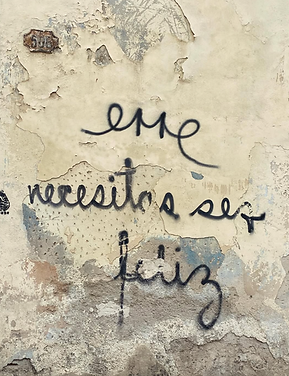 necesitas ser
feliz